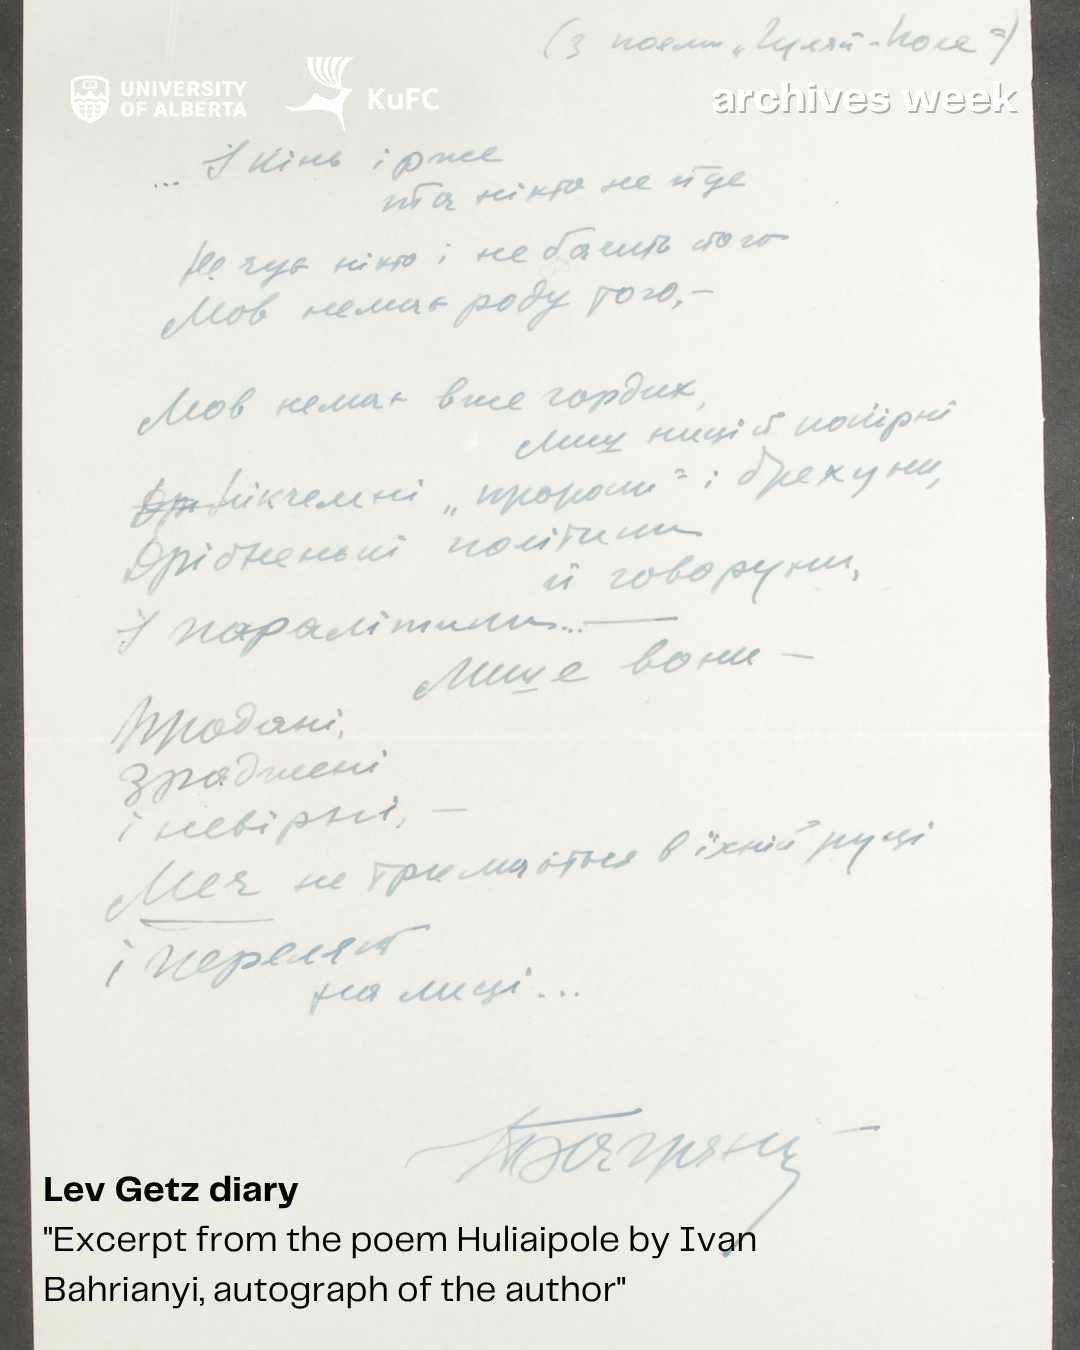 (З поеми „Гуляй-Поле")
UNIVERSITY
OF ALBERTA
KuFC
archives week
... І кінь ірже
та ніхто не йде
Не чує ніхто і не бачить того
Мов немає роду того,—
Мов немає вже гордих,
Лиш ниці й покірні
Нікчемні „пророки" і брехуни,
Дрібненькі політики
й говоруни,
І паралітики...—
Лише вони —
Продані,
Зраджені
і невірні,—
Меч не тримається в їхній руці
і переляк
на лиці...
Багряний
Lev Getz diary
"Excerpt from the poem Huliaipole by Ivan
Bahrianyi, autograph of the author"